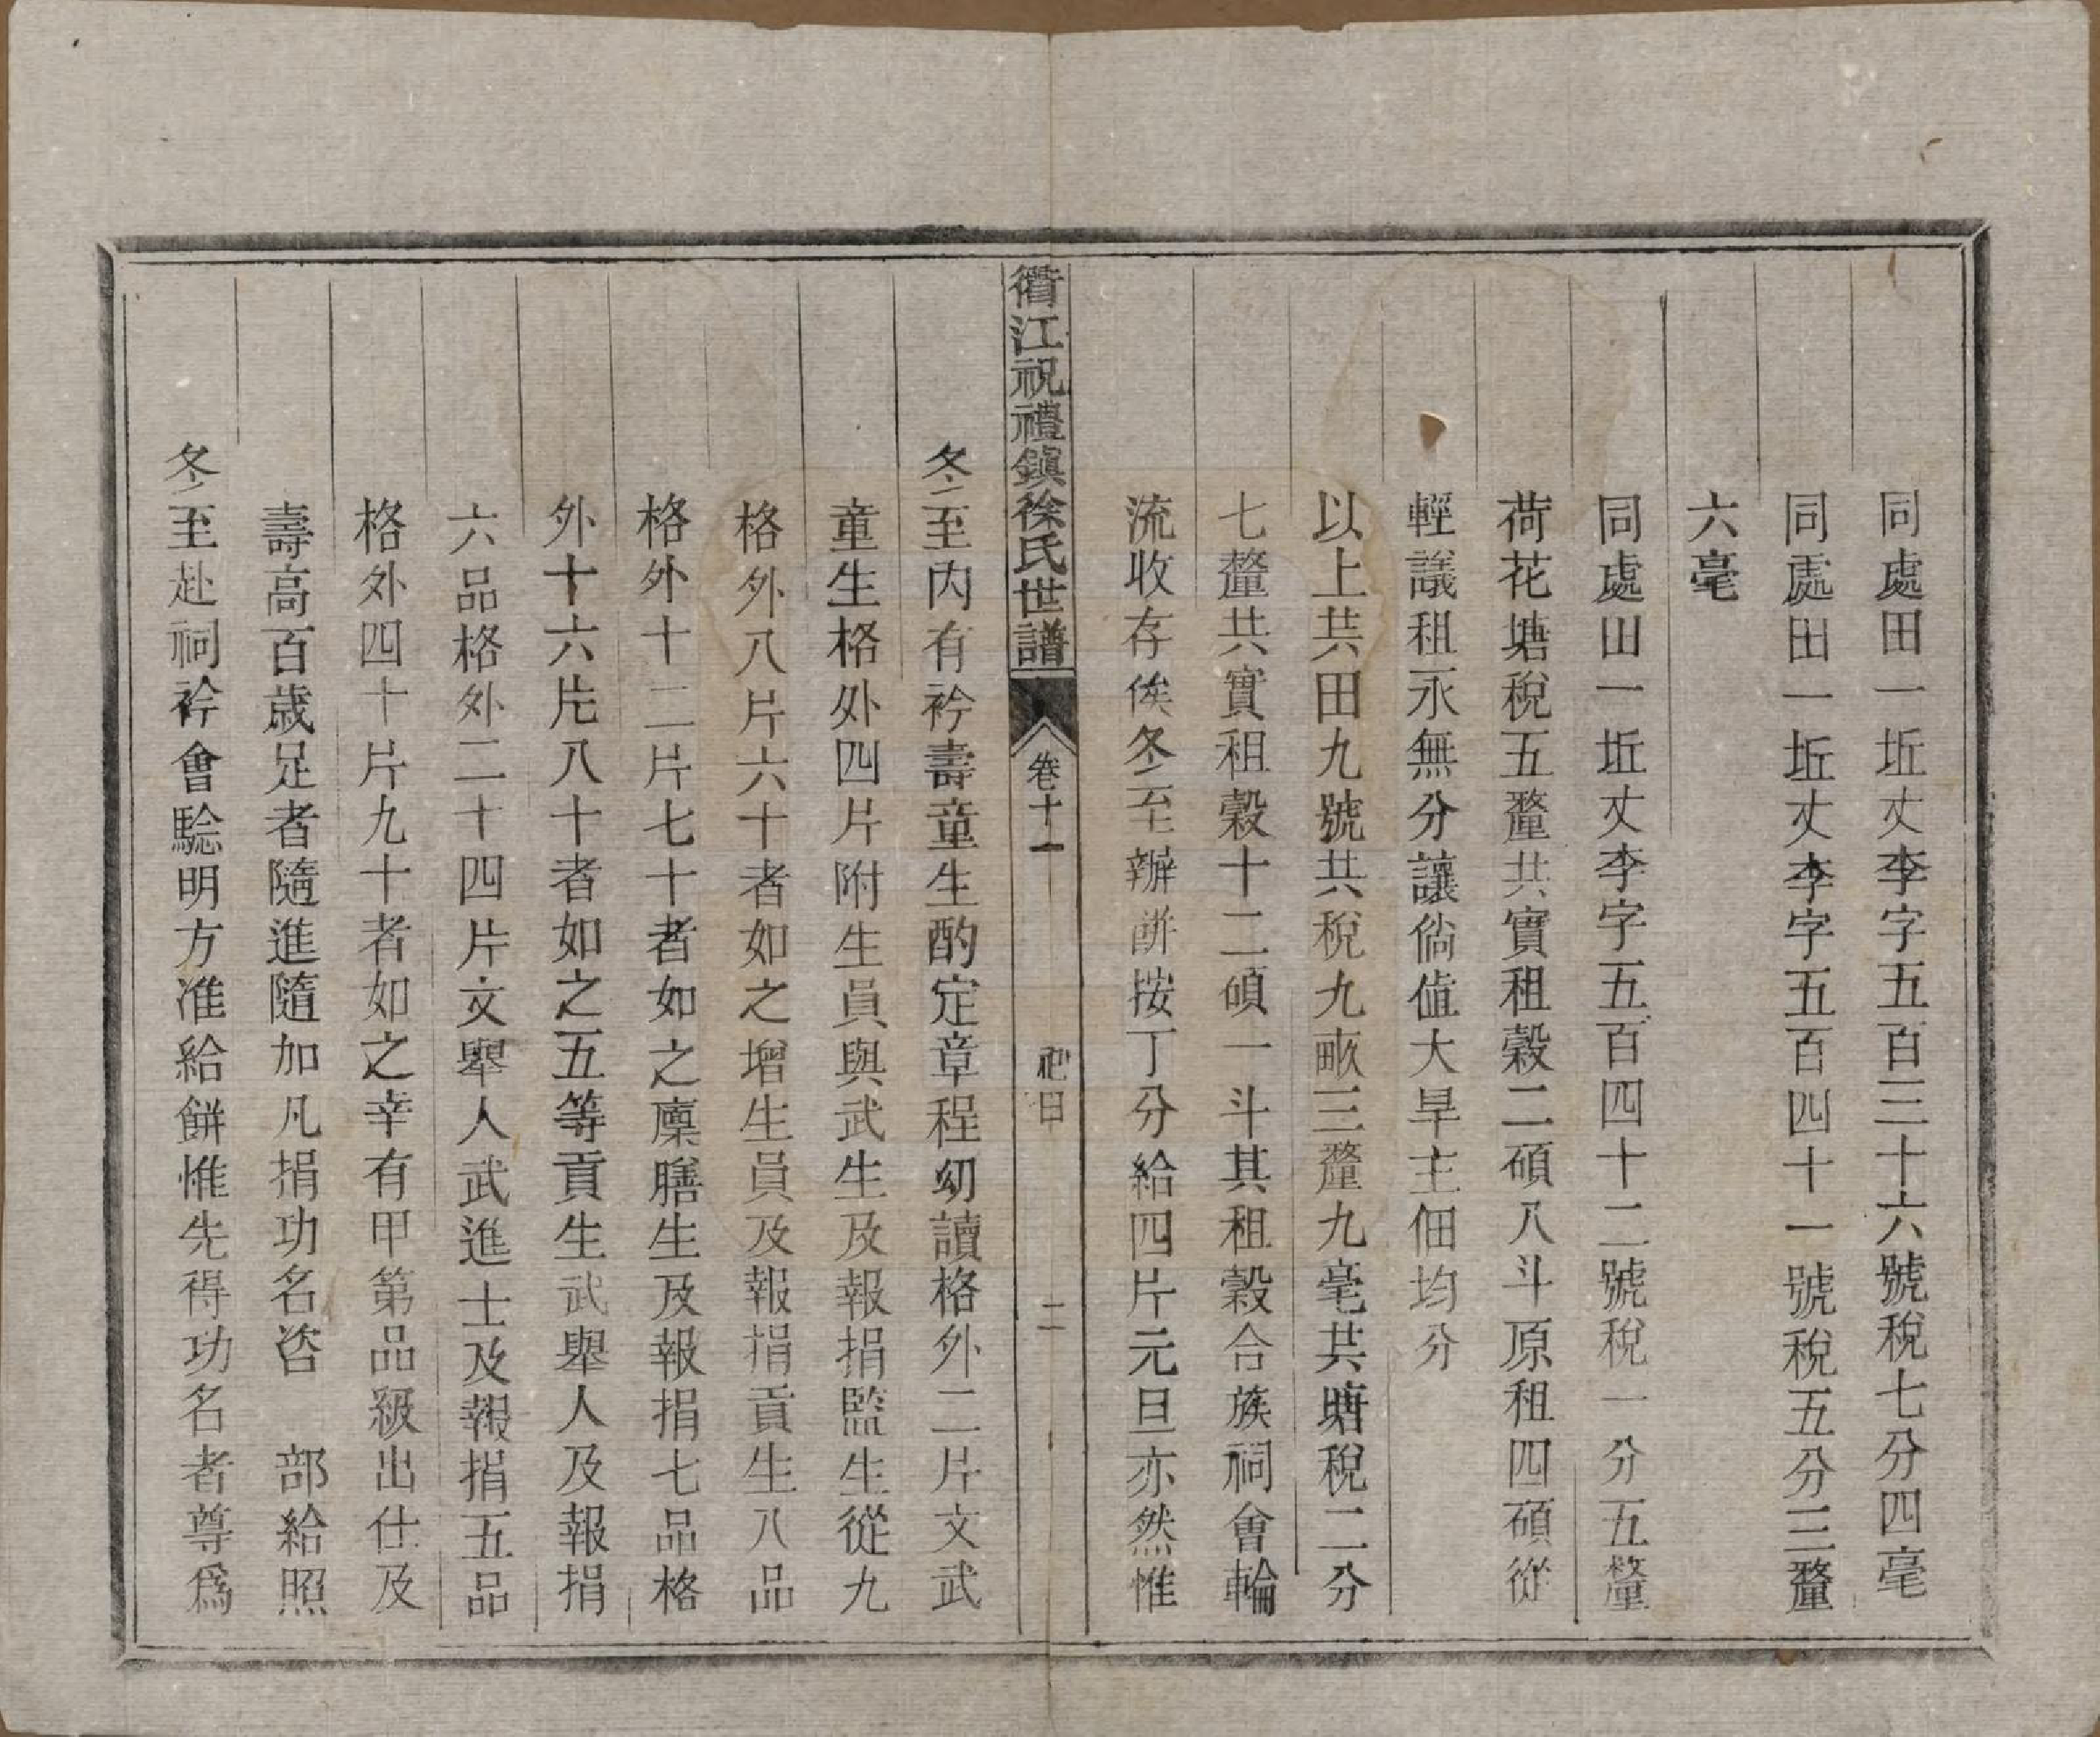 同處田一坵丈李字五百三十六號稅七分四毫
同處田一坵丈李字五百四十一號稅五分三釐
六毫
同處田一坵丈李字五百四十二號稅一分五釐
荷花塘稅五釐共實租穀二碩八斗原租四碩從
輕議租永無分讓倘值大旱主佃均分
以上共田九號共稅九畝三釐九毫共塘稅二分
七釐共實租穀十二碩一斗其租穀合族祠會輪
流收存俟冬至辦餅按丁分給四片元旦亦然惟
衢江祝禮鎮徐氏世譜 卷十一 祀田 二
冬至內有衿壽童生酌定章程幼讀格外二片文武
童生格外四片附生員與武生及報捐監生從九
格外八片六十者如之增生員及報捐貢生八品
格外十二片七十者如之廩膳生及報捐七品格
外十六片八十者如之五等貢生武舉人及報捐
六品格外二十四片文舉人武進士及報捐五品
格外四十片九十者如之幸有甲第品級出仕及
壽高百歲足者隨進隨加凡捐功名咨　部給照
冬至赴祠衿會驗明方准給餅惟先得功名者尊爲